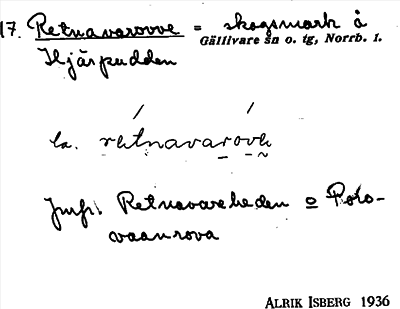 17. Retnavarovve = skogsmark å
Gällivare sn o. tg, Norrb. l.
Hjärpudden
la. retnavarove
Jmfr. Retnavareheden o Poro-
vaanrova
ALRIK ISBERG 1936